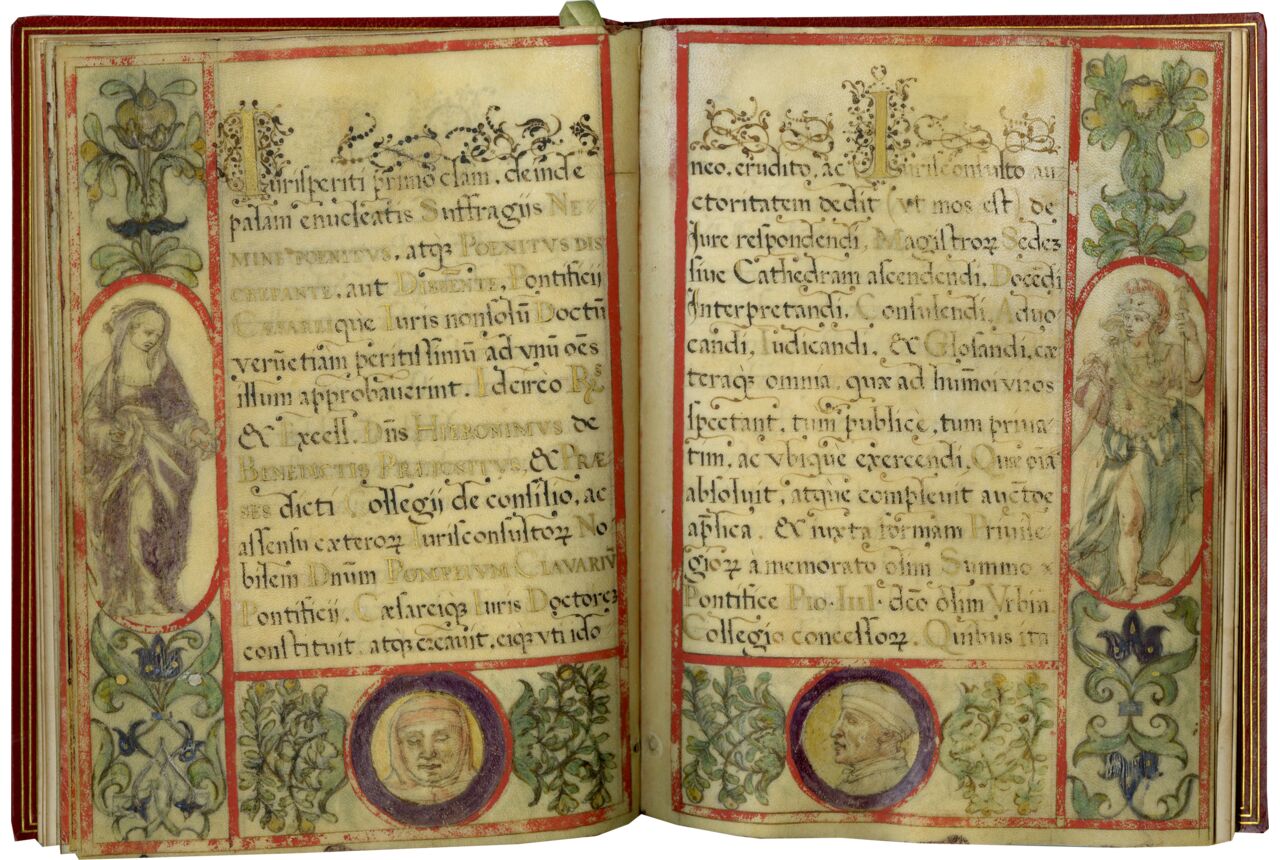 Iurisperiti primo clam, deinde
palam enucleatis Suffragijs NE⸗
MINE POENITVS, atqꝫ POENITVS DIS
CREPANTE, aut DISSENTE, Pontificij
CÆSAREIque Iuris nonsolū Doctū
verūetiam peritissimū ad vnū oēs
illum approbauerint. Idcirco R̃ꝫˢ
& Excell. Dñs HIERONIMVS de
BENEDICTIS PRÆPOSITVS, & PRÆ⸗
SES dicti Collegij de consilio, ac
assensu cæteroꝝ Iurisconsultoꝝ No
bilem Dnūm POMPEIVM CLAVARIV̄
Pontificij, Cæsareiqꝫ Iuris Doctoreꝫ
constituit, atqꝫ creauit, eiqꝫ vti ido
neo, erudito, ac Iurisconsulto au⸗
ctoritatem dedit (vt mos est) de
Iure respondendi, Magistroꝝ Sedeꝫ
siue Cathedram ascendendi, Docēdi
Interpretandi, Consulendi, Aduo
candi, Iudicandi, & Glosandi, cæ
teraqꝫ omnia, quæ ad huīmoi viros
spectant, tum publicè, tum priua⸗
tim, ac vbique exercendi. Quæ oīa
absoluit, atque compleuit auctōe
ap̄lica, & iuxta formam Priuile⸗
gioꝝ à memorato olim Summo
Pontifice PIO·IIII· dc̄o olim Vrbin
Collegio concessoꝝ. Quibus ita